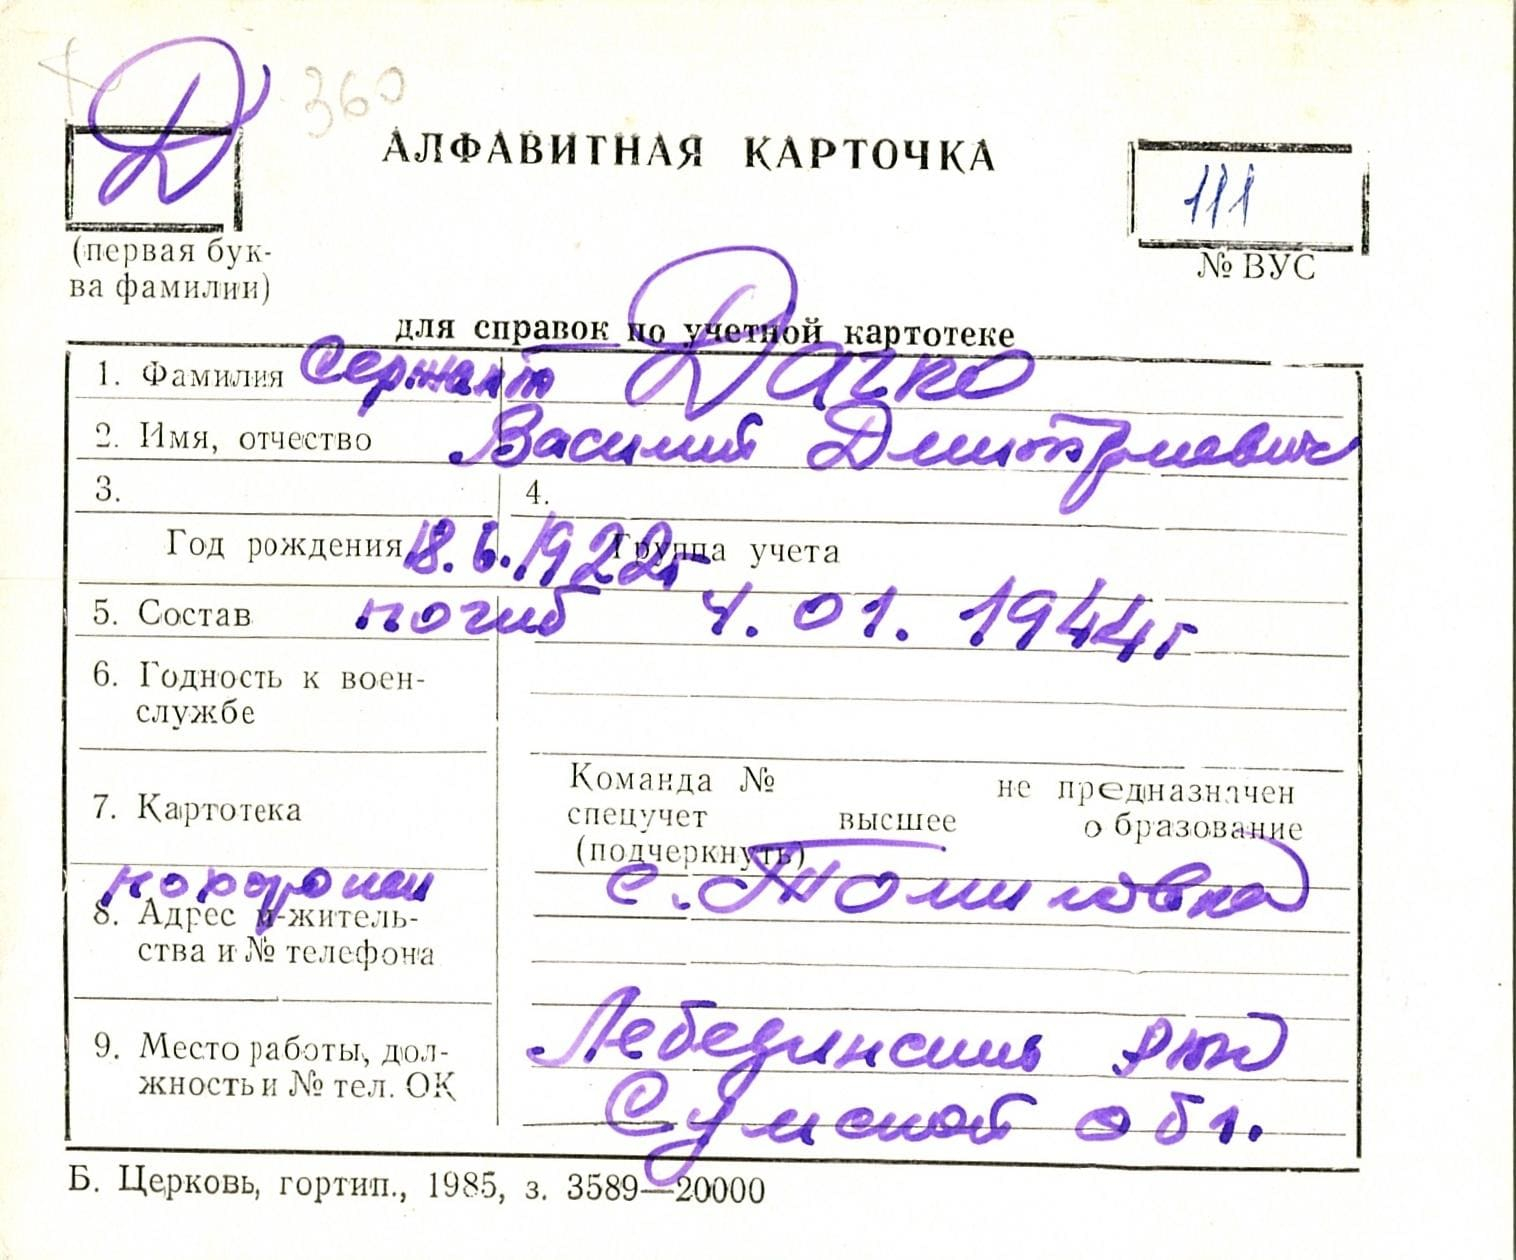 Д 360
АЛФАВИТНАЯ КАРТОЧКА
111
(первая бук-
ва фамилии)
№ ВУС
для справок по учетной картотеке
1. Фамилия Сержант Дачко
2. Имя, отчество Василий Дмитриевич
3. 4.
Год рождения 18.6.1922г Группа учета
5. Состав погиб 4.01.1944г
6. Годность к воен-
службе
7. Картотека
Команда № не предназначен
спецучет высшее образование
(подчеркнуть)
похоронен с. Томиловка
8. Адрес м-житель-
ства и № телефона
9. Место работы, дол-
жность и № тел. ОК
Лебединский р-н
Сумской обл.
Б. Церковь, гортип., 1985, з. 3589—20000